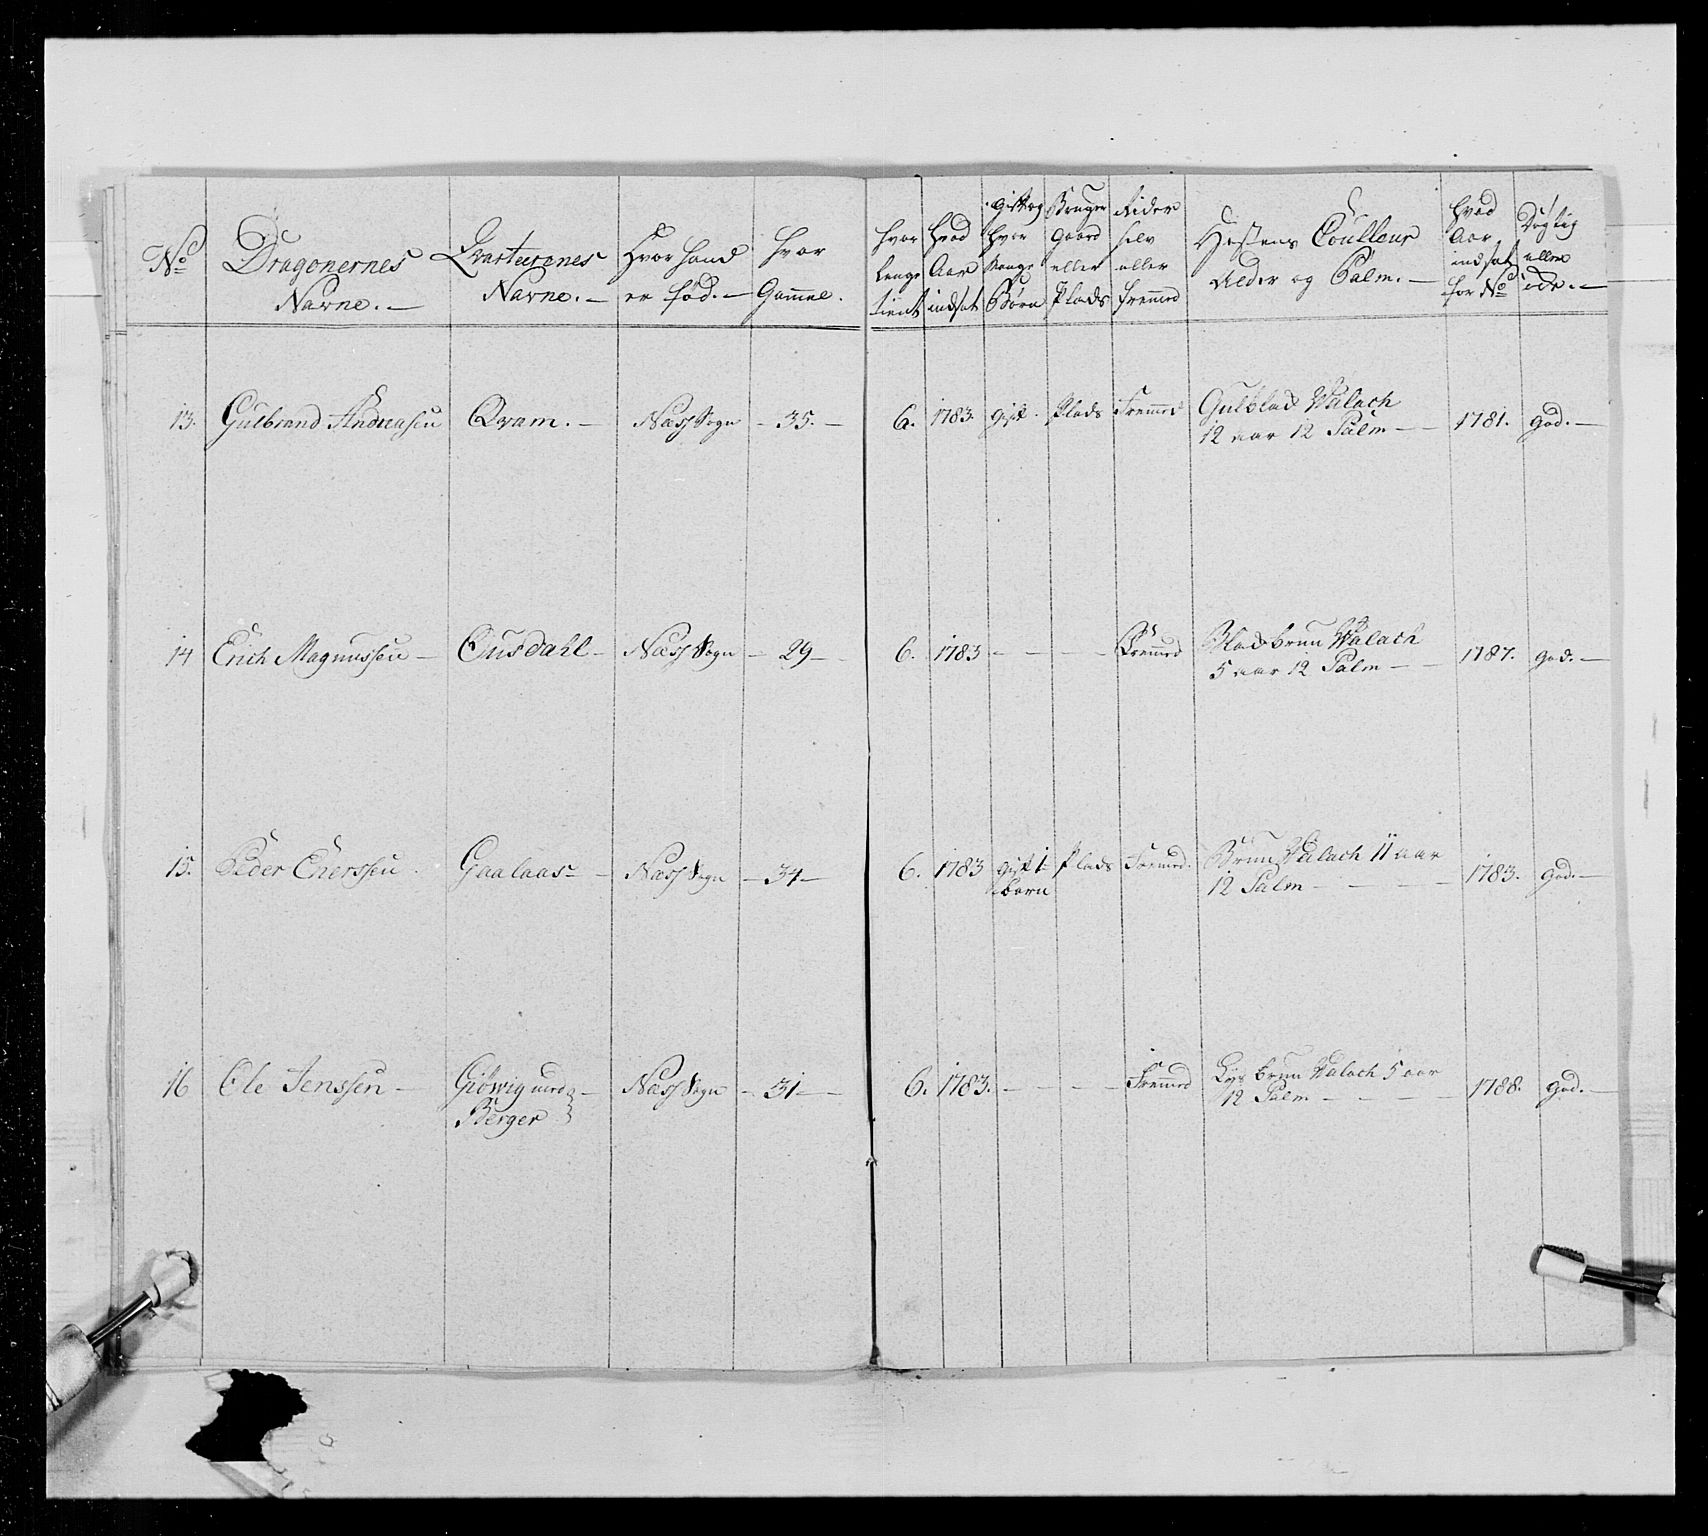 No
Dragonernes
Navne. —
Qvarteerenes
Navne. —
Hvor hand
er fød. —
Hvor
Gammel.
Hvor
lenge
tient
Hvad
Aar
indsat
Gift og
hvor
Mange
Børn
Bruger
Gaard
eller
Plads
Rider
selv
eller
fremmed
Hestens Coulleur
Alder og Palm. —
Hvad
Aar
indsat
for No
Dygtig
eller
ide. —
13. Gulbrand Andreasen Qvam. — Næss Sogn — 35. — 6. 1783. Gift. Plads Fremmed Gulblad Walach
12 aar 12 Palm — — 1781. god. —
14 Erich Magnussen — Ousdahl — Næss Sogn — 29 — 6. 1783 — — — Fremmed Blad brun Walach
5 aar 12 Palm — — 1787. god. —
15. Peder Enerssen. Gaalaas — Næss Sogn — 34 — 6. 1783 Gift 1 Plads Fremed. Brun Valach 11 aar
barn 12 Palm — — — 1783. god. —
16 Ole Jenssen — Giøwig med — Næss Sogn — 31 — 6. 1783. — — — Fremmed Lys brun Valach 5 aar
Berger 12 Palm — — — 1788. god. —